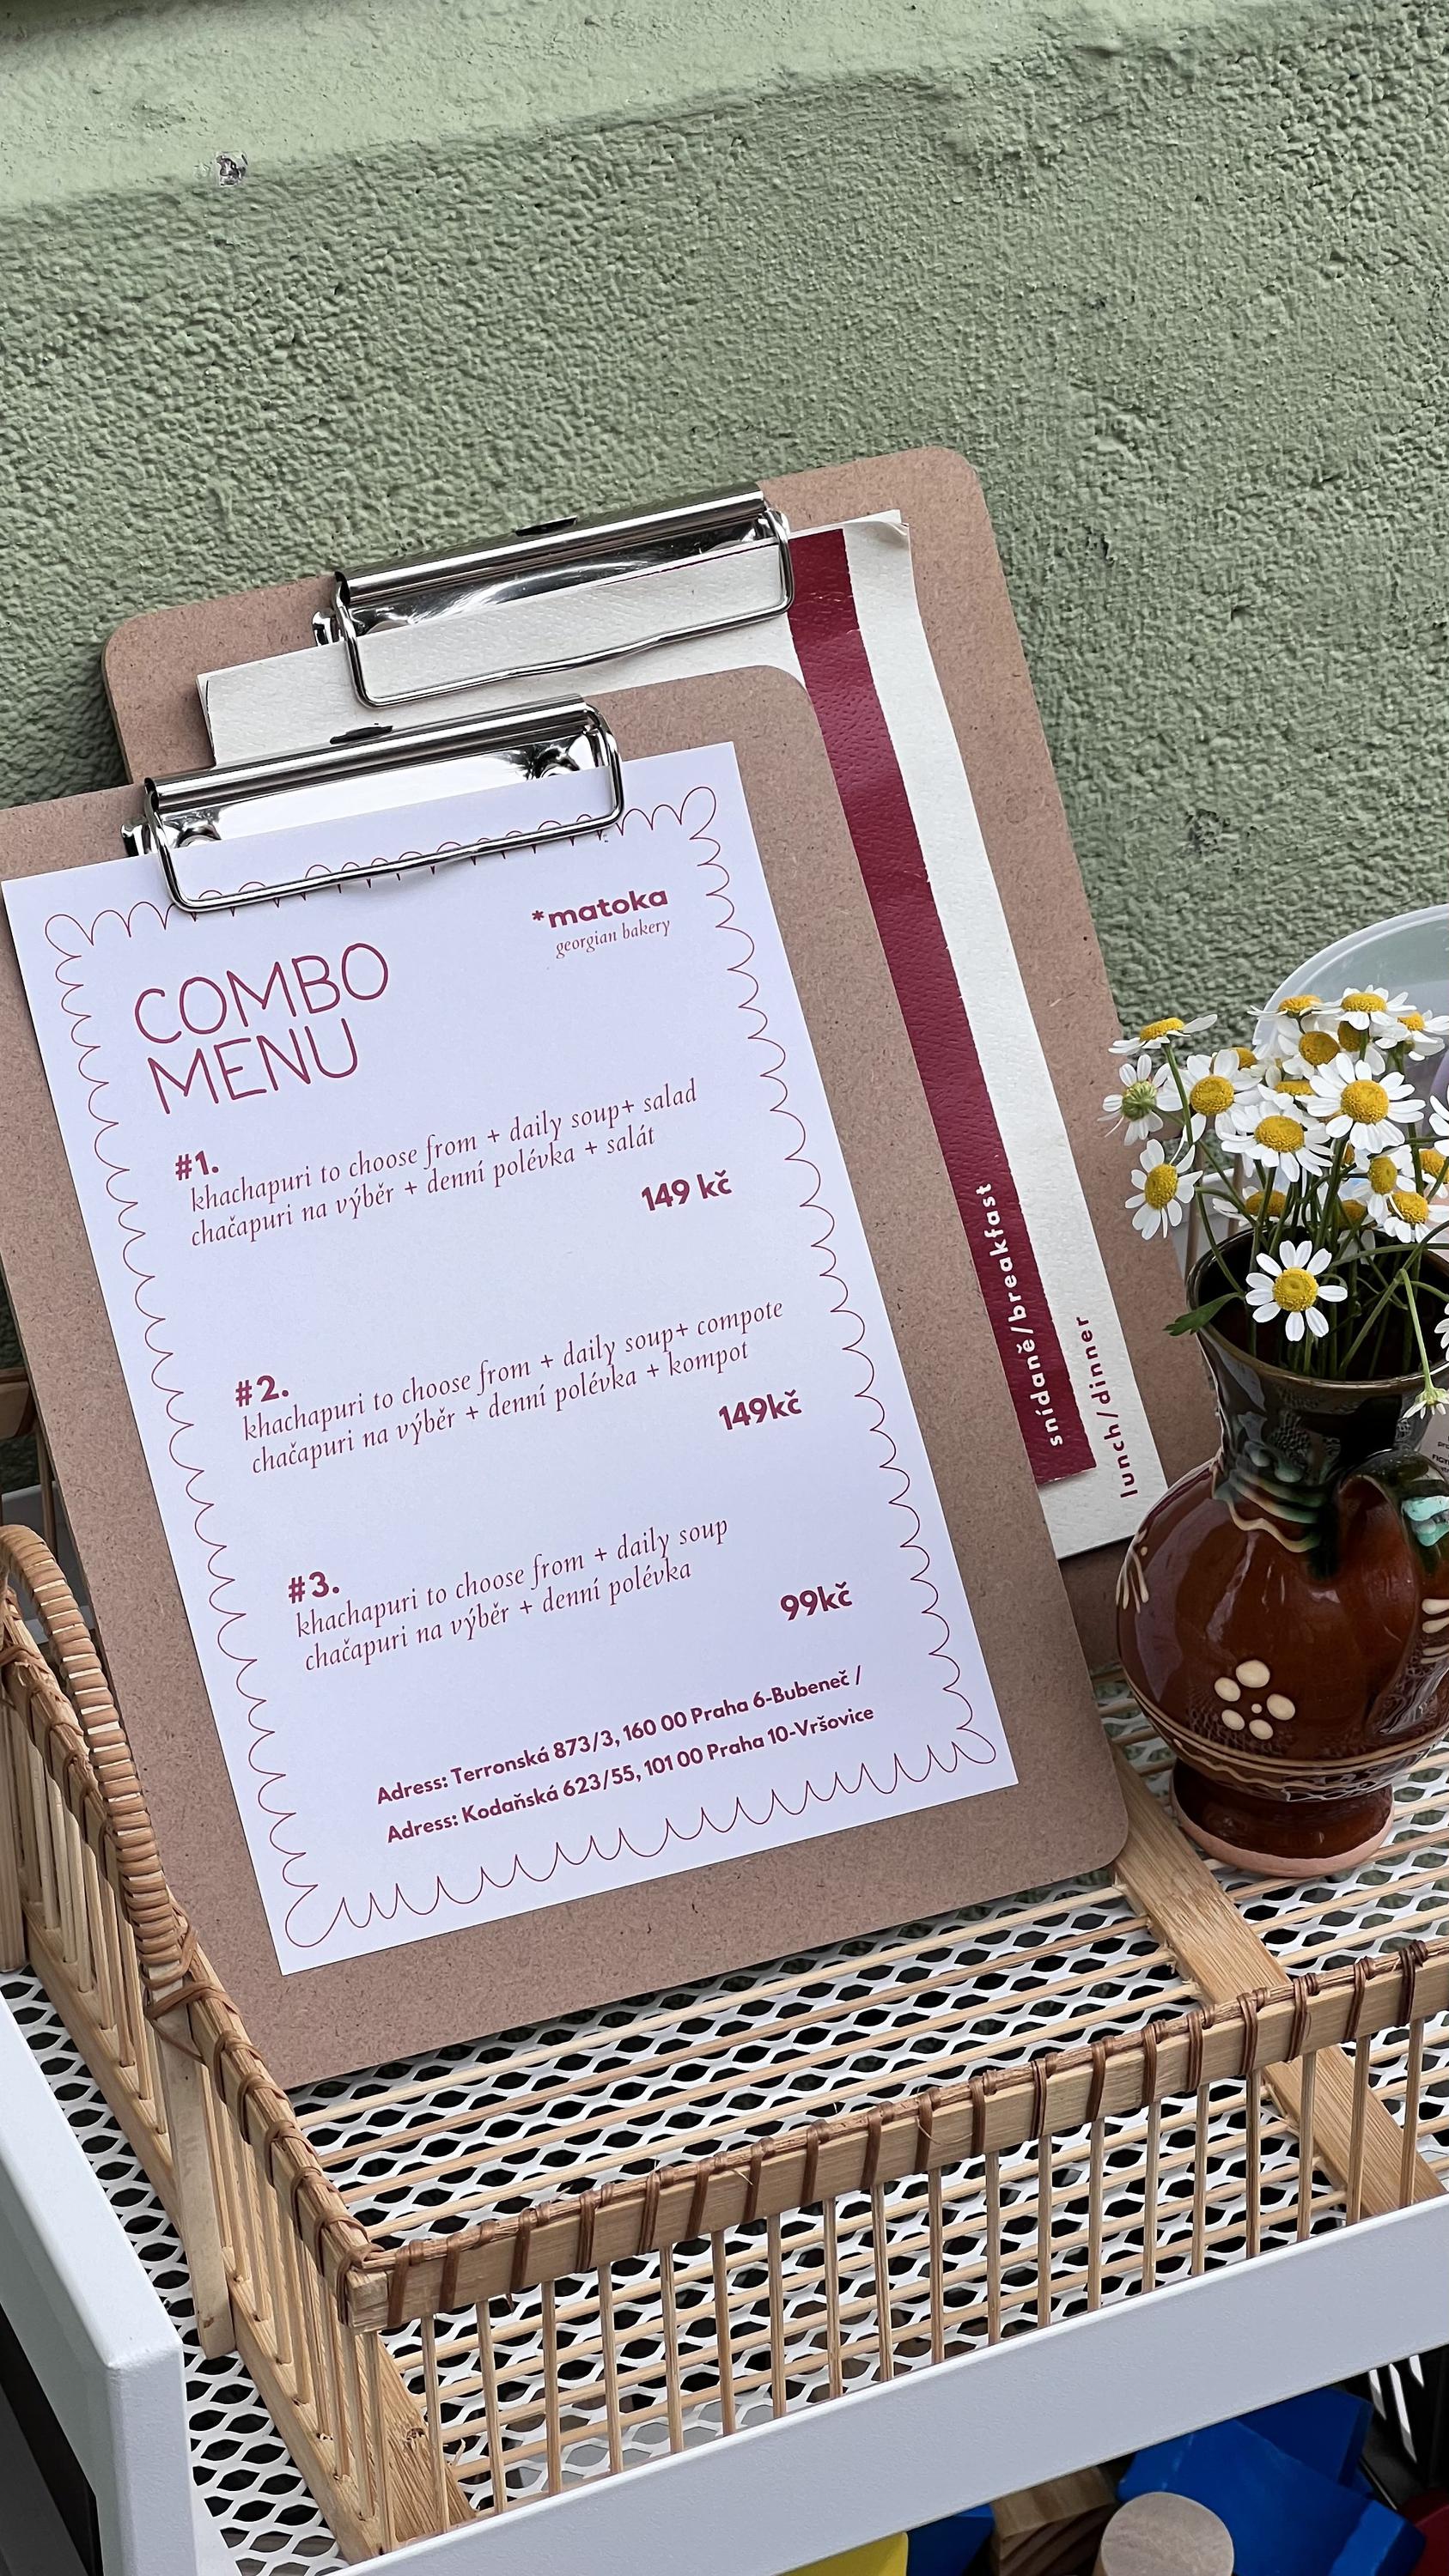 *matoka
georgian bakery
COMBO
MENU
#1.
khachapuri to choose from + daily soup+ salad
chačapuri na výběr + denní polévka + salát
149 kč
#2.
khachapuri to choose from + daily soup+ compote
chačapuri na výběr + denní polévka + kompot
149kč
#3.
khachapuri to choose from + daily soup
chačapuri na výběr + denní polévka
99kč
Adress: Terronská 873/3, 160 00 Praha 6-Bubeneč /
Adress: Kodaňská 623/55, 101 00 Praha 10-Vršovice
snídaně/breakfast
lunch/dinner